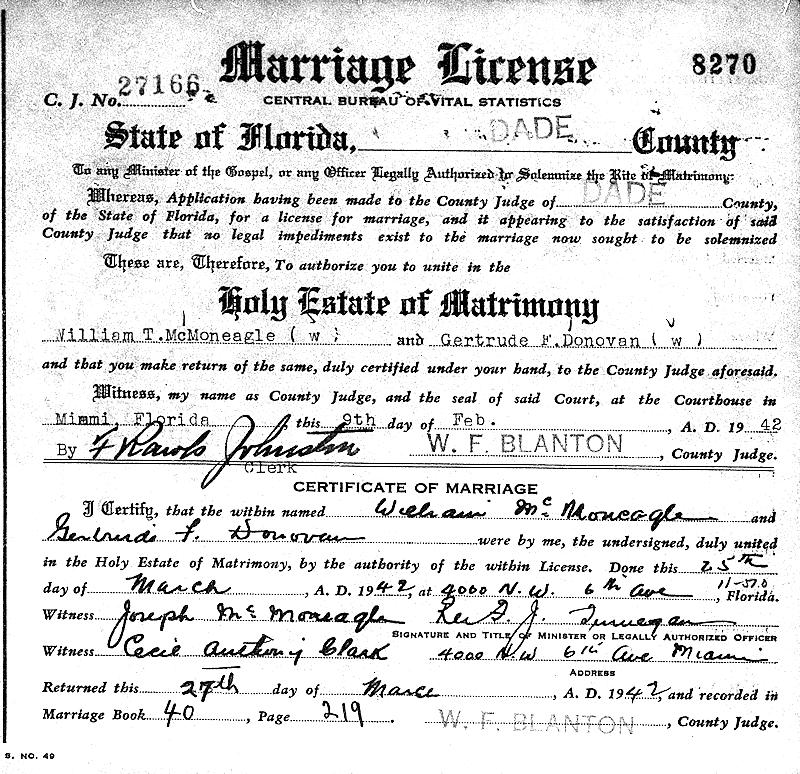 Marriage License 8270
C. J. No. 27166
CENTRAL BUREAU OF VITAL STATISTICS
State of Florida, DADE County
To any Minister of the Gospel, or any Officer Legally Authorized to Solemnize the Rite of Matrimony:
Whereas, Application having been made to the County Judge of DADE County,
of the State of Florida, for a license for marriage, and it appearing to the satisfaction of said
County Judge that no legal impediments exist to the marriage now sought to be solemnized
These are, Therefore, To authorize you to unite in the
Holy Estate of Matrimony
William T. McMoneagle ( w ) and Gertrude F. Donovan ( w )
and that you make return of the same, duly certified under your hand, to the County Judge aforesaid.
Witness, my name as County Judge, and the seal of said Court, at the Courthouse in
Miami, Florida, this 9th day of Feb., A. D. 19 42
By F Rawls Johnston W. F. BLANTON, County Judge.
Clerk
CERTIFICATE OF MARRIAGE
I Certify, that the within named William Mc Moneagle and
Gertrude F. Donovan were by me, the undersigned, duly united
in the Holy Estate of Matrimony, by the authority of the within License. Done this 25th
day of March, A. D. 1942, at 4000 N. W. 6th Ave, Florida.
Witness Joseph Mc Moneagle Rev. J.
SIGNATURE AND TITLE OF MINISTER OR LEGALLY AUTHORIZED OFFICER
Witness Cecil Anthony Clark 4000 N.W 6th Ave Miami
ADDRESS
Returned this 27th day of March, A. D. 1942, and recorded in
Marriage Book 40, Page 219. W. F. BLANTON, County Judge.
S. NO. 49